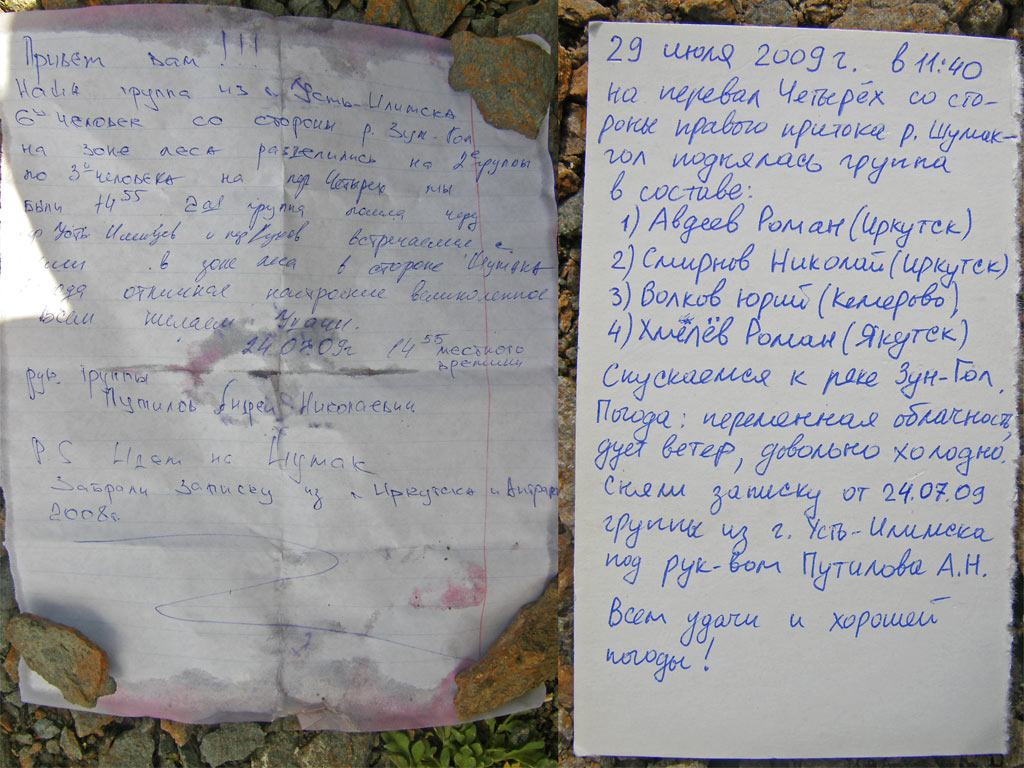 Привет вам!!!
Наша группа из г. Усть-Илимска
6 человек со стороны р. Зун-Гол
на зоне леса разделились на 2 группы
по 3 человека на пер Четырех мы
были 14 55 2ая группа пошла через
встречаемся с
в зоне леса в стороне Шумака
отличная настроение великолепное
всем желаем удачи.
24.07.09г 14 55 местного
времени
рук. группы
Путилов Андрей Николаевич
P.S Идем на Шумак
Забрали записку из г. Иркутска и
2008г.
29 июля 2009г. в 11:40
на перевал Четырёх со сто-
роны правого притока р. Шумак-
гол поднялась группа
в составе:
1) Авдеев Роман (Иркутск)
2) Смирнов Николай (Иркутск)
3) Волков Юрий (Кемерово)
4) Хмелёв Роман (Якутск)
Спускаемся к реке Зун-Гол.
Погода: переманная облачность,
дует ветер, довольно холодно.
Сняли записку от 24.07.09
группы из г. Усть-Илимска
под рук-вом Путилова А.Н.
Всем удачи и хорошей
погоды!